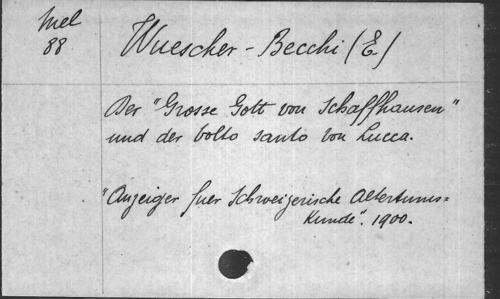 Mel
88
Wuescher-Becchi (E)
Der "Grosse Gott von Schaffhausen"
und der volto santo von Lucca.
"Anzeiger fuer Schweizerische Altertums=
Kunde". 1900.